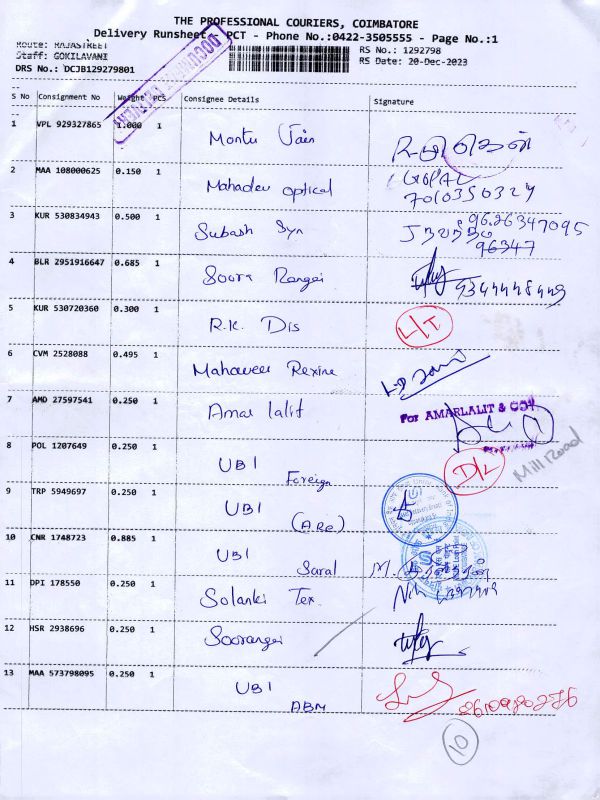 THE PROFESSIONAL COURIERS, COIMBATORE
Delivery Runsheet - PCT - Phone No.:0422-3505555 - Page No.:1
Route: RAJASTREET
Staff: GOKILAVANI
DRS No.: DCJB129279801
RS No.: 1292798
RS Date: 20-Dec-2023
S No Consignment No Weight PCS Consignee Details Signature
1 VPL 929327865 1.000 1 Montu Jain
2 MAA 108000625 0.150 1 Mahadev optical
7010350324
3 KUR 530834943 0.500 1 Subash Syn 9626347095
96347
4 BLR 2951916647 0.685 1 Soora Rangai
5 KUR 530720360 0.300 1 R.K. Dis L/T
6 CVM 2528088 0.495 1 Mahaveer Rexine
7 AMD 27597541 0.250 1 Amar lalit For AMARLALIT & CO
8 POL 1207649 0.250 1 UBI Foreign D/L Mill Road
9 TRP 5949697 0.250 1 UBI (ARE)
10 CNR 1748723 0.885 1 UBI Saral
11 DPI 178550 0.250 1 Solanki Tex.
12 HSR 2938696 0.250 1 Soorangai
13 MAA 573798095 0.250 1 UBI ABM
10